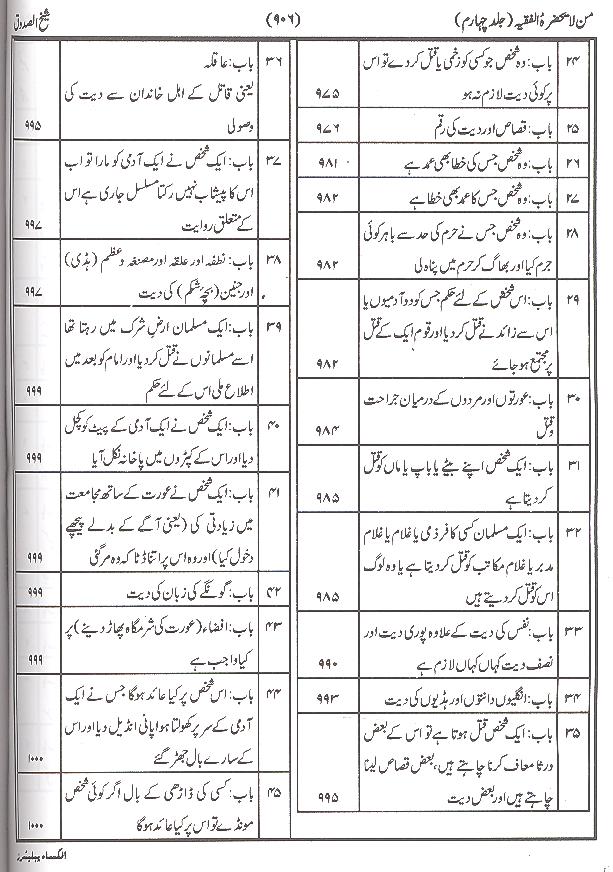 من لا یحضرہ الفقیہ (جلد چہارم)
(۹۰۶)
شیخ الصدوقؒ
۲۴ باب: وہ شخص جو کسی کو زخمی یا قتل کر دے تو اس
پر کوئی دیت لازم نہ ہو ۹۷۵
۲۵ باب: قصاص اور دیت کی رقم ۹۷۶
۲۶ باب: وہ شخص جس کی خطا بھی عمد ہے ۹۸۱
۲۷ باب: وہ شخص جس کا عمد بھی خطا ہے ۹۸۲
۲۸ باب: وہ شخص جس نے حرم کی حد سے باہر کوئی
جرم کیا اور بھاگ کر حرم میں پناہ لی ۹۸۲
۲۹ باب: اس شخص کے لئے حکم جس کو دو آدمیوں یا
اس سے زائد نے قتل کر دیا اور قوم ایک کے قتل
پر مجتمع ہو جائے ۹۸۲
۳۰ باب: عورتوں اور مردوں کے درمیان جراحت
وقتل ۹۸۴
۳۱ باب: ایک شخص اپنے بیٹے یا باپ یا ماں کو قتل
کر دیتا ہے ۹۸۵
۳۲ باب: ایک مسلمان کسی کافر ذمی یا غلام یا غلام
مدبر یا غلام مکاتب کو قتل کر دیتا ہے یا وہ لوگ
اس کو قتل کر دیتے ہیں ۹۸۵
۳۳ باب: نفس کی دیت کے علاوہ پوری دیت اور
نصف دیت کہاں کہاں لازم ہے ۹۹۰
۳۴ باب: انگلیوں دانتوں اور ہڈیوں کی دیت ۹۹۳
۳۵ باب: ایک شخص قتل ہوتا ہے تو اس کے بعض
ورثا معاف کرنا چاہتے ہیں، بعض قصاص لینا
چاہتے ہیں اور بعض دیت ۹۹۵
۳۶ باب: عاقلہ
یعنی قاتل کے اہل خاندان سے دیت کی
وصولی ۹۹۵
۳۷ باب: ایک شخص نے ایک آدمی کو مارا تو اب
اس کا پیشاب نہیں رکتا مسلسل جاری ہے اس
کے متعلق روایت ۹۹۷
۳۸ باب: نطفہ اور علقہ اور مضغہ و عظم (ہڈی) اور
اور جنین (بچۂ شکم) کی دیت ۹۹۷
۳۹ باب: ایک مسلمان ارضِ شرک میں رہتا تھا
اسے مسلمانوں نے قتل کر دیا اور امام کو بعد میں
اطلاع ملی اس کے لئے حکم ۹۹۹
۴۰ باب: ایک شخص نے ایک آدمی کے پیٹ کو کچل
دیا اور اس کے کپڑوں میں پاخانہ نکل آیا ۹۹۹
۴۱ باب: ایک شخص نے عورت کے ساتھ مجامعت
میں زیادتی کی (یعنی آگے کے بدلے پیچھے
دخول کیا) اور وہ اس پر اتنا ڈٹا کہ وہ مر گئی ۹۹۹
۴۲ باب: گونگے کی زبان کی دیت ۹۹۹
۴۳ باب: افضاء (عورت کی شرمگاہ پھاڑ دینے) پر
کیا واجب ہے ۹۹۹
۴۴ باب: اس شخص پر کیا عائد ہوگا جس نے ایک
آدمی کے سر پر کھولتا ہوا پانی انڈیل دیا اور اس
کے سارے بال جھڑ گئے ۱۰۰۰
۴۵ باب: کسی کی ڈاڑھی کے بال اگر کوئی شخص
مونڈے تو اس پر کیا عائد ہوگا ۱۰۰۰
الکساء پبلیشرز